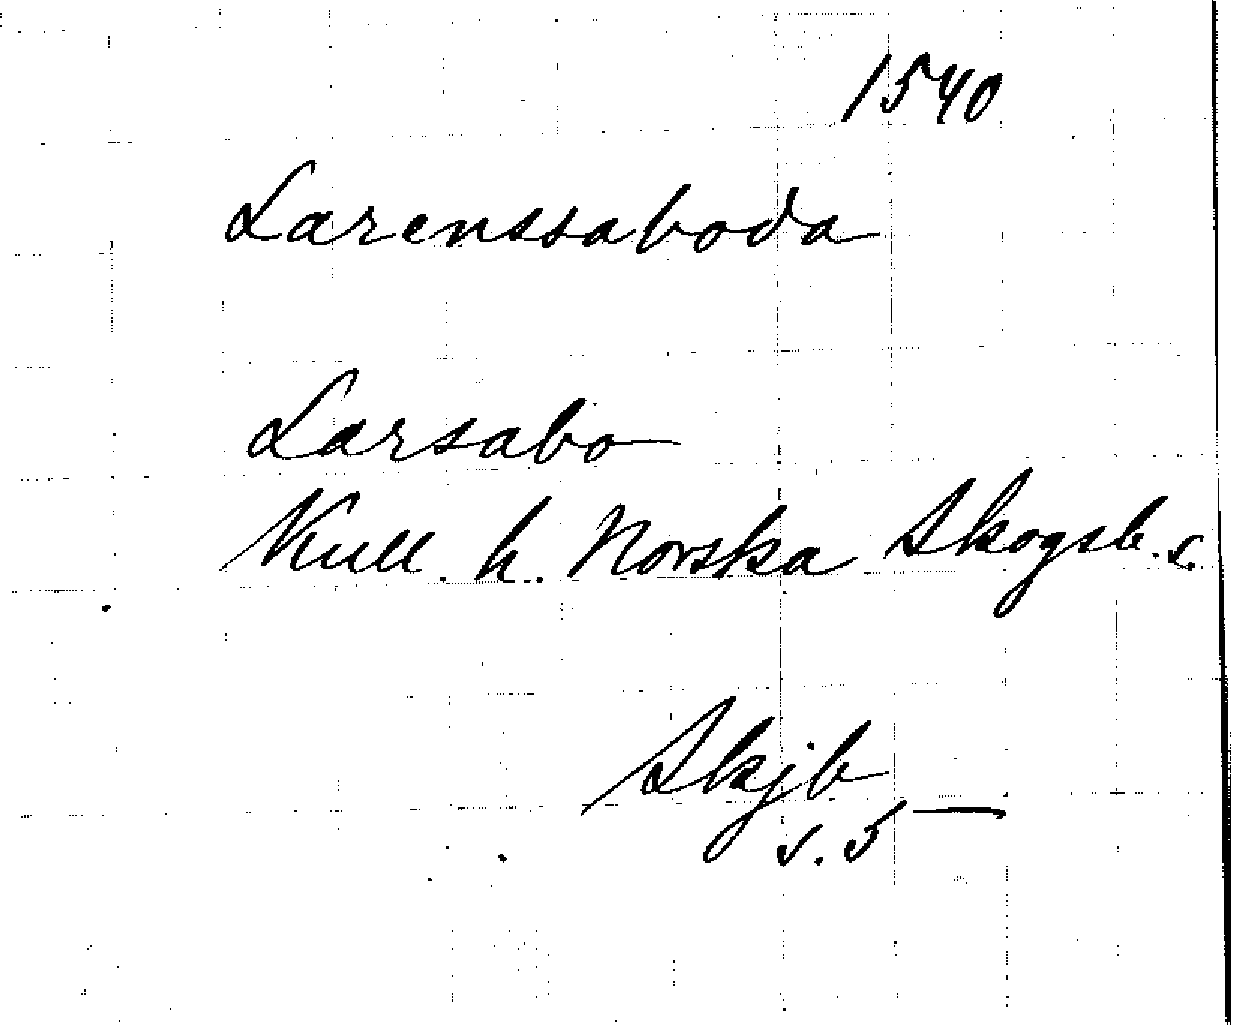 1540
Larenssaboda
Larsabo
Kull. h. Norska Skogsb. s.
Skjb
s. 5 —